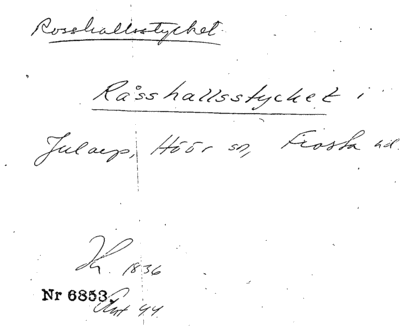 Rosshallsstycket
Råsshallsstycket i
Julaep, Höör sn, Frosta hd.
Kr. 1836
Nr 6853. Ant 44